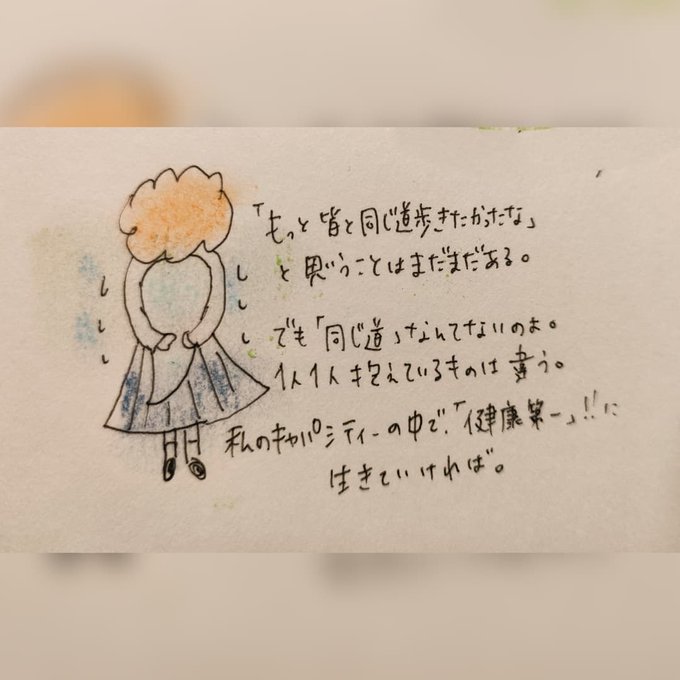 「もっと皆と同じ道歩きたかったな」
と思うことはまだまだある。
でも「同じ道」なんてないのよ。
1人1人抱えているものは違う。
私のキャパシティーの中で、「健康第一」!!に
生きていければ。